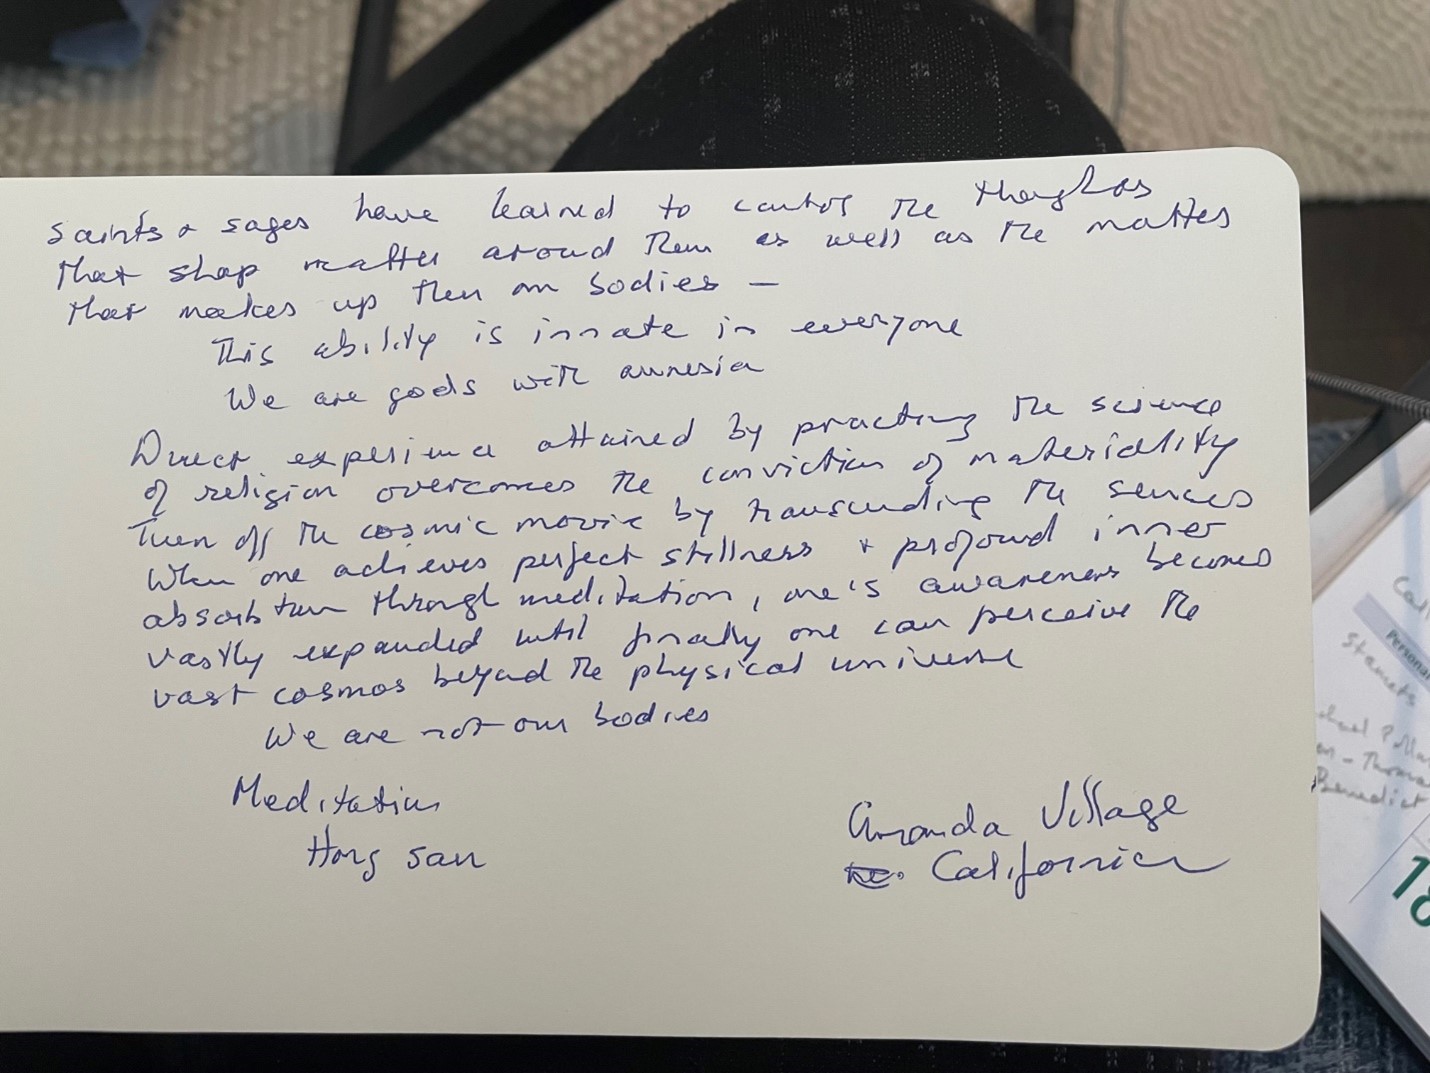 saints & sages have learned to control the thoughts
that shap matter around them as well as the matter
that makes up their own bodies —
This ability is innate in everyone
We are gods with amnesia
Direct experience attained by practicing the science
of religion overcomes the conviction of materiality
Turn off the cosmic movie by transcending the senses
When one achieves perfect stillness & profound inner
absorbtion through meditation, one's awareness becomes
vastly expanded until finally one can perceive the
vast cosmos beyond the physical universe
We are not our bodies
Meditation
Hong sau
Ananda Village
California
Persona
Stamets
Benedict
18